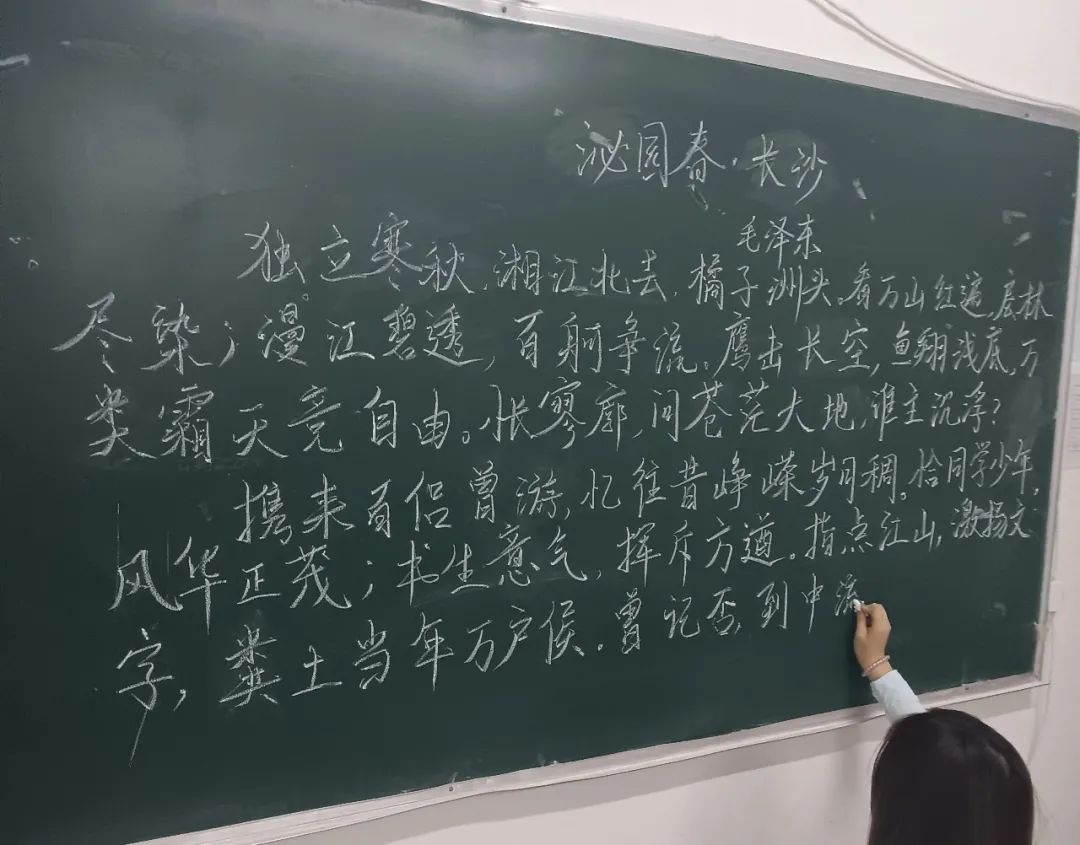 泌园春·长沙
毛泽东
独立寒秋,湘江北去,橘子洲头。看万山红遍,层林
尽染;漫江碧透,百舸争流。鹰击长空,鱼翔浅底,万
类霜天竞自由。怅寥廓,问苍茫大地,谁主沉浮?
携来百侣曾游,忆往昔峥嵘岁月稠。恰同学少年,
风华正茂;书生意气,挥斥方遒。指点江山,激扬文
字,粪土当年万户侯。曾记否,到中流